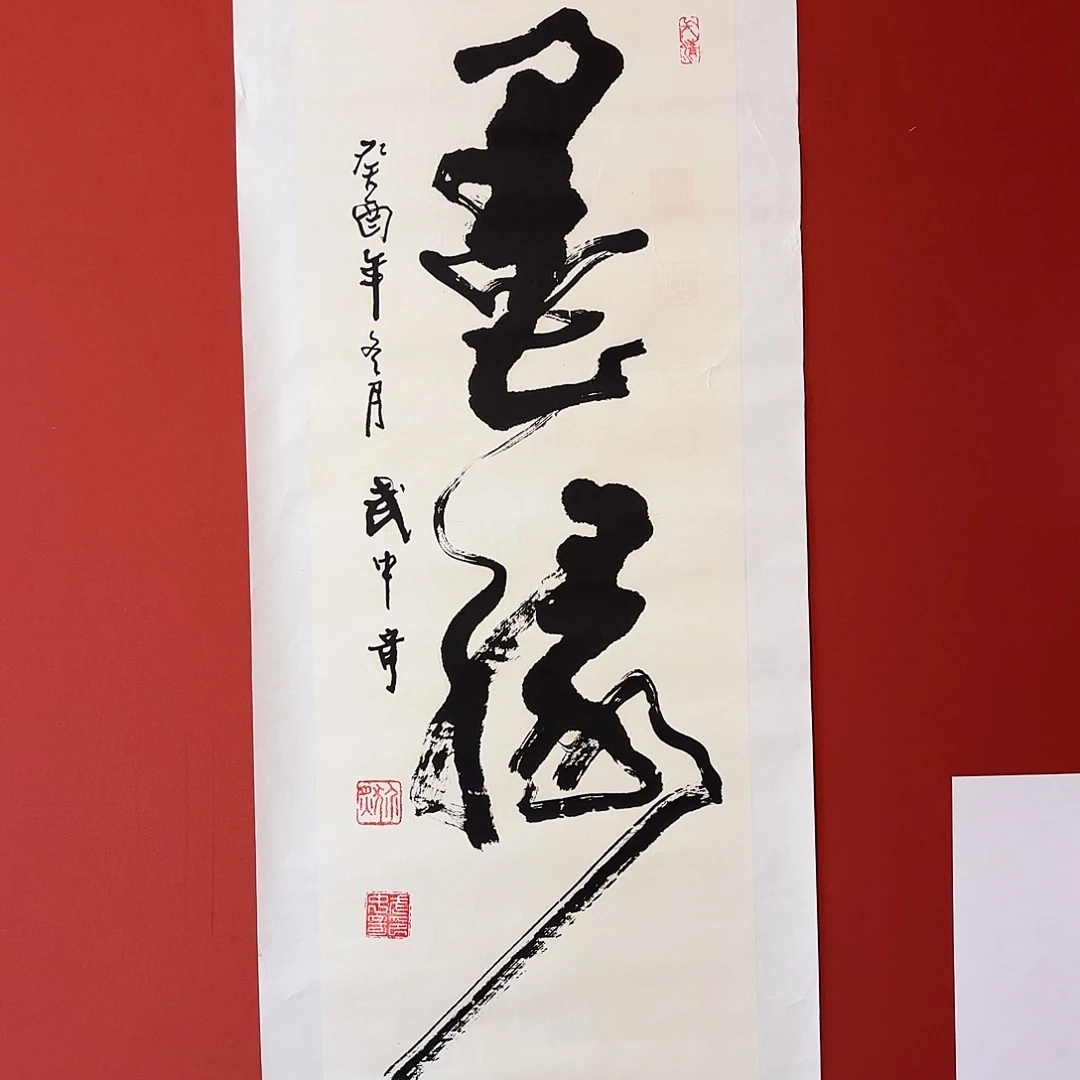 墨緣
癸酉年冬月 武中奇